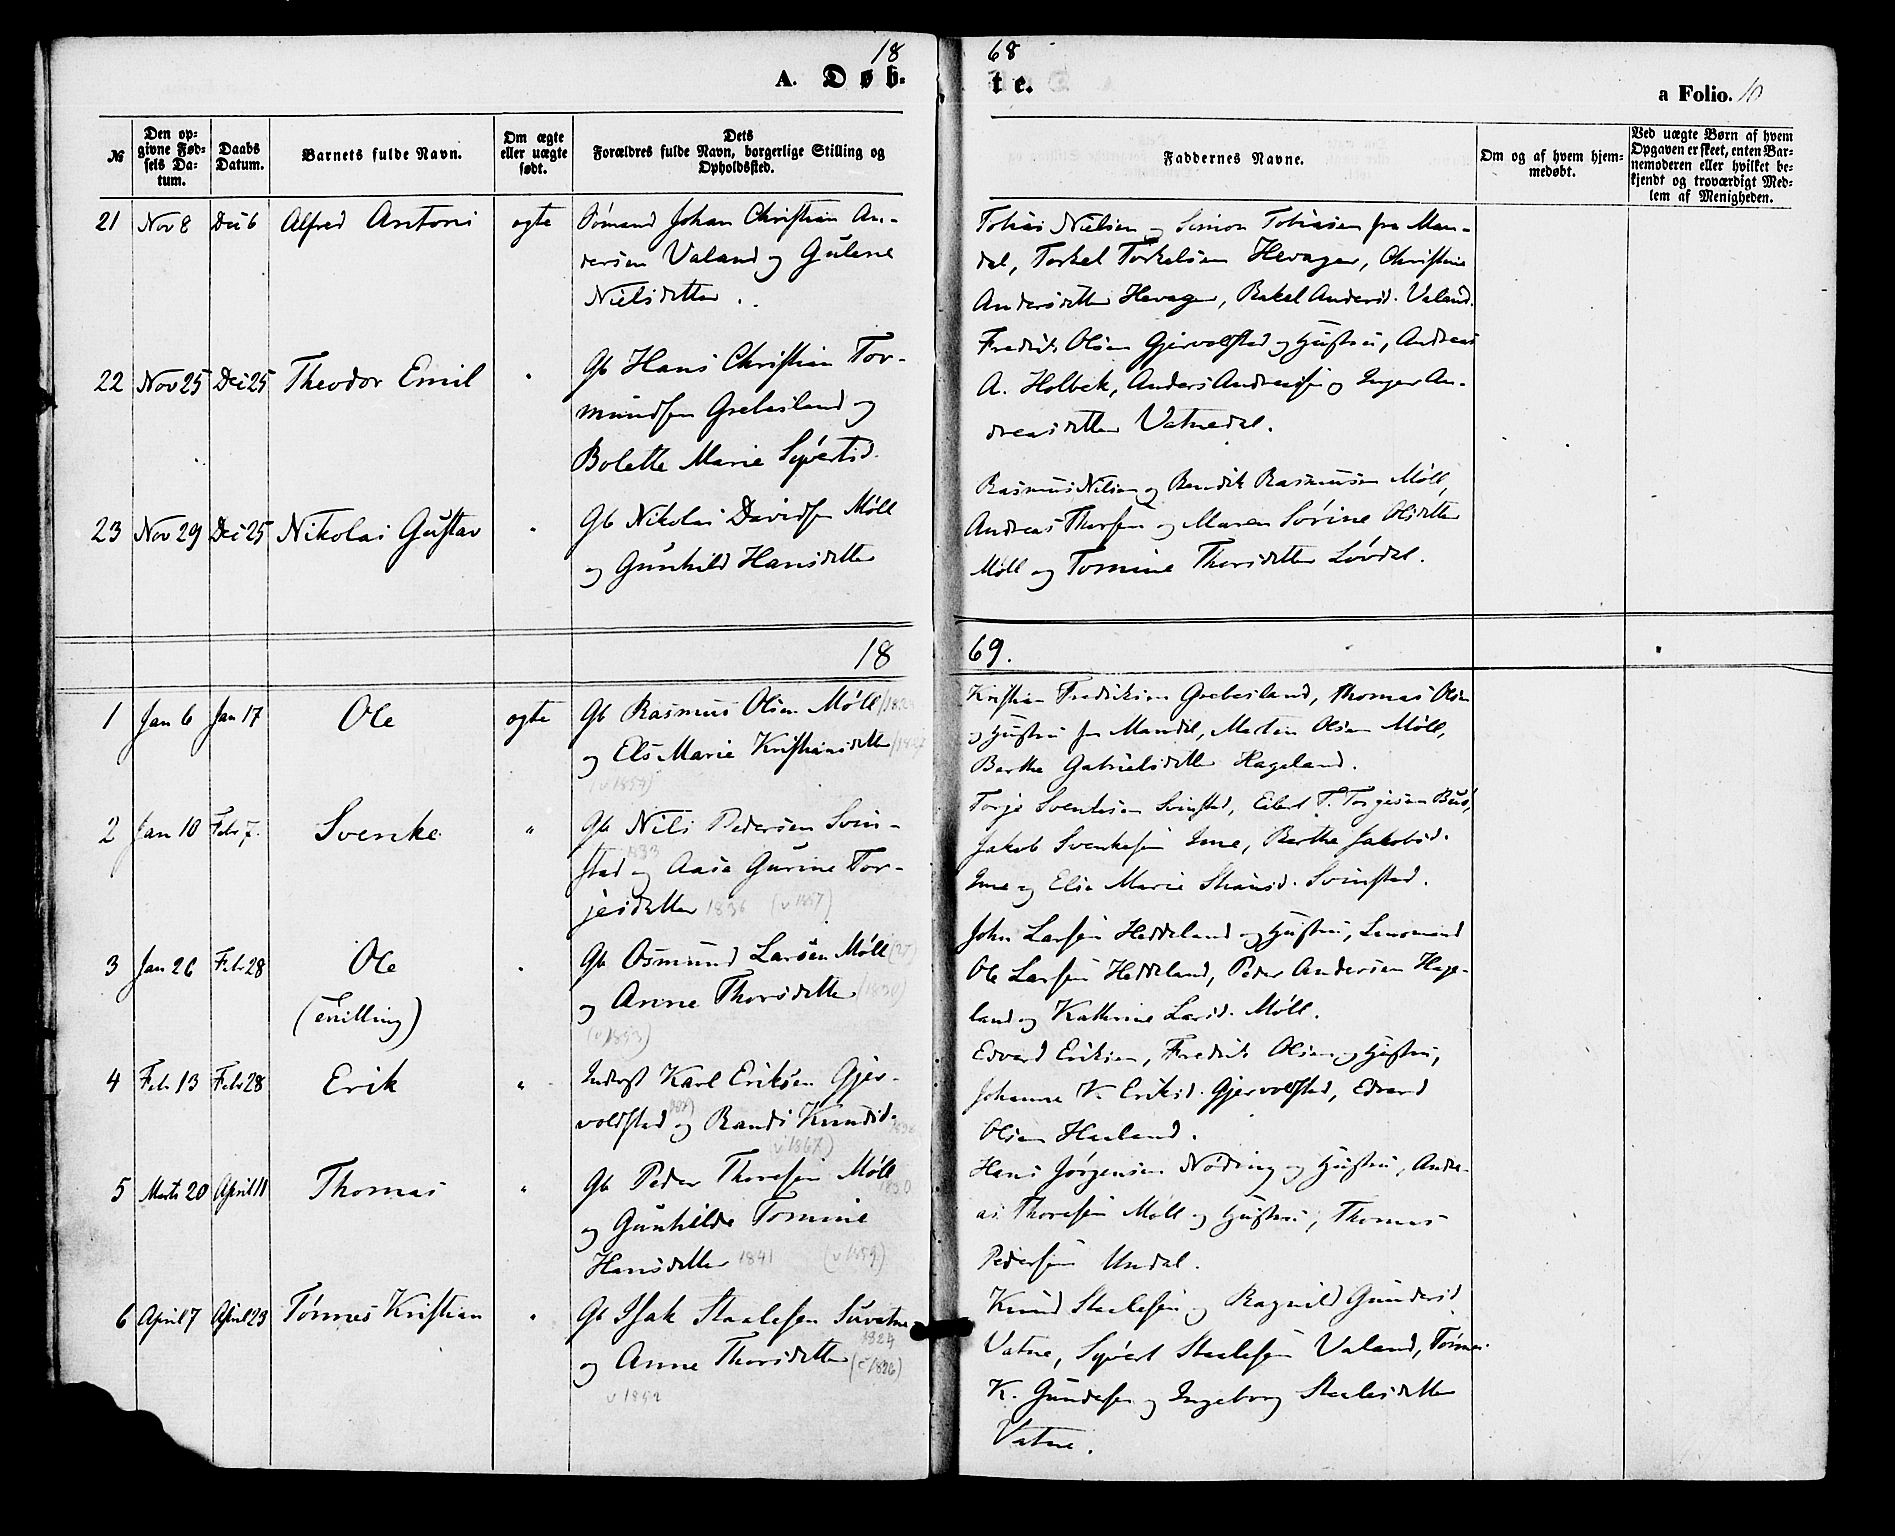 18 68
A. Døb- te.
a Folio. 10
№
Den op-
givne Fød-
sels Da-
tum.
Daabs
Datum.
Barnets fulde Navn.
Om ægte
eller uægte
født.
Dets
Forældres fulde Navn, borgerlige Stilling og
Opholdssted.
Faddernes Navne.
Om og af hvem hjem-
medøbt.
Ved uægte Børn af hvem
Opgaven er skeet, enten Bar-
nemoderen eller hvilket be-
kjendt og troværdigt Med-
lem af Menigheden.
21 Nov 8 Dec 6 Alfred Antoni ægte
Sømand Johan Christian An-
dersen Valand og Gulene
Nielsdatter.
Tobias Nielsen og Simon Tobiasen fra Man-
dal, Torkel Torkelsen Hevager, Christine
Andersdatter Hevager, Rakel Andersd. Valand.
22 Nov 25 Dec 25 Theodor Emil "
Gb Hans Christian Tor-
mundsen Grebesland og
Bolette Marie Syvertsd.
Fredrik Olsen Gjervolstad og Hustru, Andreas
A. Holbek, Anders Andreassen og Inger An-
dreasdatter Vatnedal.
23 Nov 29 Dec 25 Nikolai Gustav "
Gb Nikolai Davidsen Møll
og Gunhild Hansdatter
Rasmus Nilsen og Bendik Rasmussen Møll,
Andreas Thorsen og Maren Sørine Olsdatter
Møll og Tomine Thorsdatter Løvdal.
18 69.
1 Jan 6 Jan 17 Ole ægte
Gb Rasmus Olsen Møll
og Els. Marie Kristiansdatter
(v 1857)
Kristian Fredriksen Grebesland, Thomas Olsen
og Hustru fra Mandal, Martin Olsen Møll,
Berthe Gabrielsdatter Hageland.
2 Jan 10 Febr 7. Svenke "
Gb Nils Pedersen Svin-
1833
stad og Aasa Gurine Tor-
jesdatter 1836 (v 1857)
Torje Svenkesen Svinstad, Eilert T. Torgiesen Buø,
Jakob Svenkesen Ime, Berthe Jakobsd.
Ime og Elsa Marie Stausd. Svinstad.
3 Jan 26 Febr 28 Ole "
(Trilling)
Gb Osmund Larsen Møll (27)
og Anne Thorsdatter (1830)
(v 1853)
John Larsen Heddeland og Hustru, Lensmand
Ole Larsen Heddeland, Peder Andersen Hage-
land og Kathrine Larsd. Møll.
4 Febr 13 Febr 28 Erik "
Inderst Karl Eriksen Gjer-
voldstad og Randi Knudsd.
v 1867)
Edvard Eriksen, Fredrik Olsen og Hustru,
Johanne K. Eriksd. Gjervolstad, Edvard
Olsen Haaland.
5 Marts 20 April 11 Thomas "
Gb Peder Thoresen Møll
1830
og Gunhilde Tomine
Hansdatter 1841 (v 1859)
Hans Jørgensen Nøding og Hustru, Andre-
as Thoresen Møll og Hustru, Thomas
Pedersen Undal.
6 April 7 April 29 Tønnes Kristian "
Gb Isak Staalesen Suvatne
1824
og Anne Thorsdatter (c 1826)
v 1852
Knud Staalesen og Ragnild Gundersd.
Vatne, Syvert Staalesen Valand, Tønnes
K. Gundersen og Ingeborg Staalesdatter
Vatne.